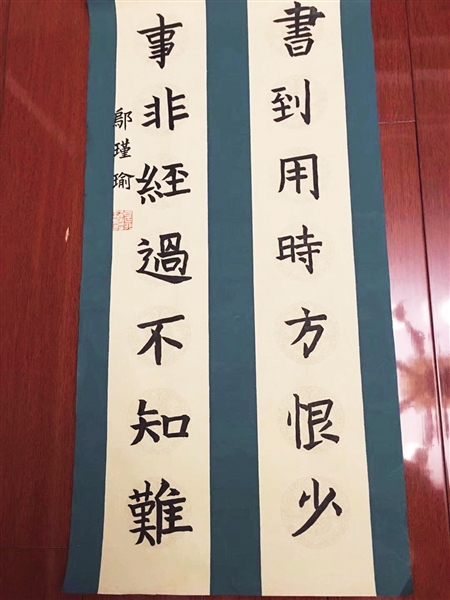 書到用時方恨少
事非經過不知難
鄔瑾瑜